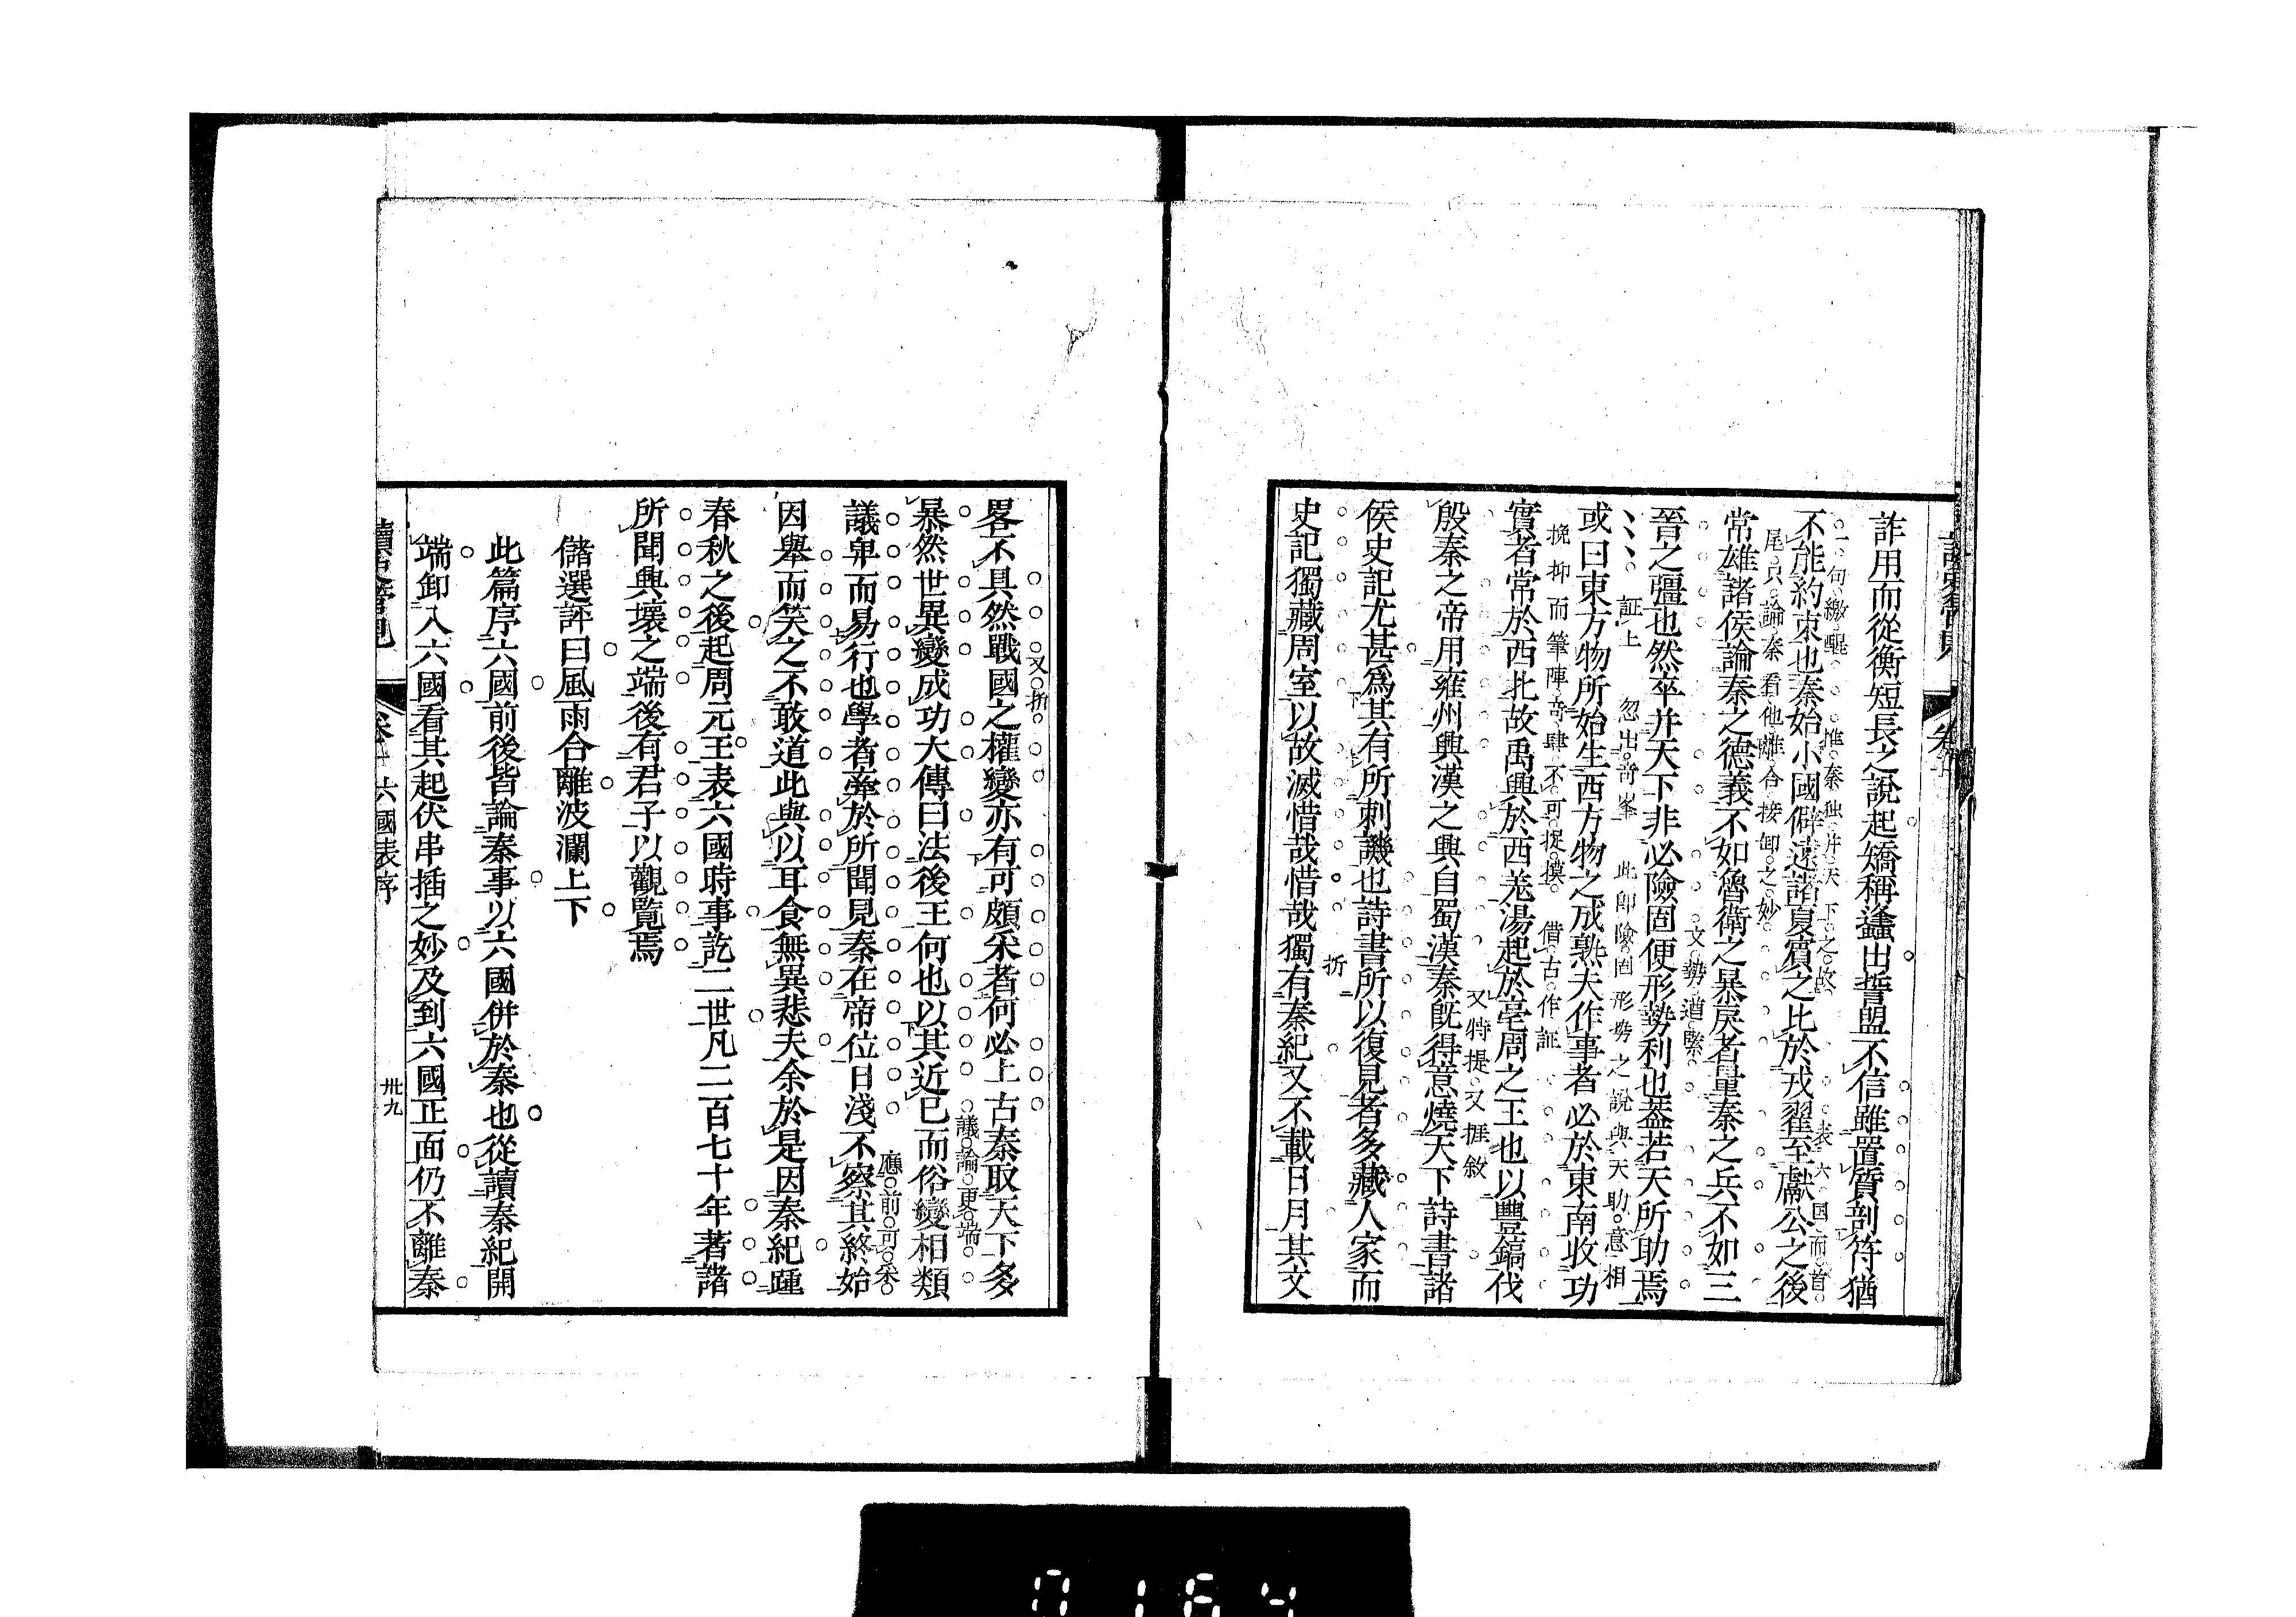 詐用而從衡短長之說起矯稱蠭出誓盟不信雖置質剖符猶
一句繳轉
推秦独并天下之故
表六国而首
不能約束也秦始小國僻遠諸夏賓之比於戎翟至獻公之後
尾只論秦看他離合接卸之妙
常雄諸侯論秦之德義不如魯衛之暴戾者量秦之兵不如三
文勢遒緊
晉之疆也然卒并天下非必險固便形勢利也蓋若天所助焉
証上
忽出奇峯
此即險固形勢之說與天助意相
或曰東方物所始生西方物之成熟夫作事者必於東南收功
挽抑而筆陣奇肆不可捉摸
借古作証
實者常於西北故禹興於西羌湯起於亳周之王也以豐鎬伐
又特提又捱敘
殷秦之帝用雍州興漢之興自蜀漢秦旣得意燒天下詩書諸
侯史記尤甚爲其有所刺譏也詩書所以復見者多藏人家而
折
史記獨藏周室以故滅惜哉惜哉獨有秦紀又不載日月其文
畧不具然戰國之權變亦有可頗采者何必上古秦取天下多
又折
議論更端
暴然世異變成功大傳曰法後王何也以其近已而俗變相類
應前可采
議卑而易行也學者牽於所聞見秦在帝位日淺不察其終始
因舉而笑之不敢道此與以耳食無異悲夫余於是因秦紀踵
春秋之後起周元王表六國時事訖二世凡二百七十年著諸
所聞興壞之端後有君子以觀覽焉
儲選評曰風雨合離波瀾上下
此篇序六國前後皆論秦事以六國併於秦也從讀秦紀開
端卸入六國看其起伏串插之妙及到六國正面仍不離秦
六國表序
卅九